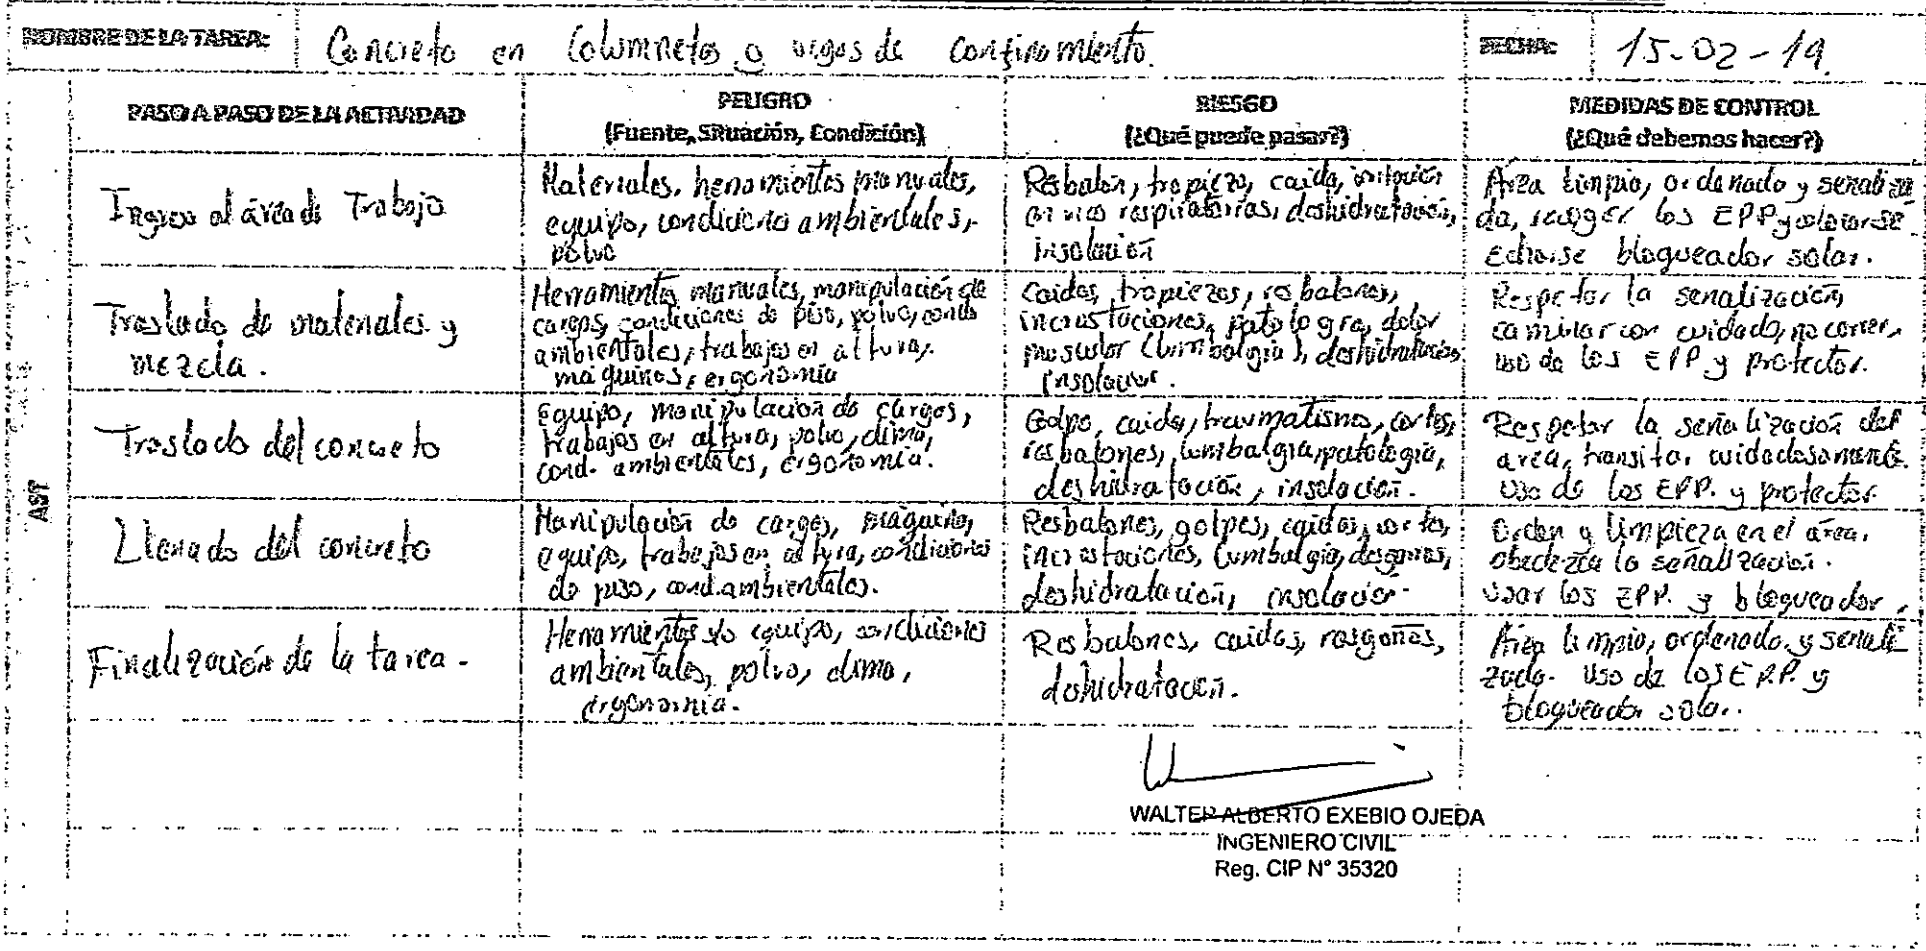 NOMBRE DE LA TAREA: Concreto en Columnetas o vigas de confinamiento.
FECHA: 15-02-19.
PASO A PASO DE LA ACTIVIDAD
PELIGRO
(Fuente, Situación, Condición)
RIESGO
(¿Qué puede pasar?)
MEDIDAS DE CONTROL
(¿Qué debemos hacer?)
AST
Ingreso al área de Trabajo
Materiales, herramientas manuales,
equipo, condiciones ambientales,
polvo
Resbalón, tropiezo, caida, irritación
en vias respiratorias, deshidratación,
insolación
Área limpia, ordenado y señaliza
da, recoger los EPP y colocarse
Echarse bloqueador solar.
Traslado de materiales y
mezcla.
Herramientas manuales, manipulación de
cargas, condiciones de piso, polvo, conds
ambientales, trabajos en altura,
máquinas, ergonomia
Caidas, tropiezos, resbalones,
incrustaciones, patologia, dolor
muscular (lumbalgia), deshidratación
insolación.
Respetar la señalización,
caminar con cuidado, no correr,
uso de los EPP. y protector.
Traslado del concreto
Equipo, manipulación de cargas,
trabajos en altura, polvo, clima,
cond. ambientales, ergonomia.
Golpe, caida, traumatismo, cortes,
resbalones, lumbalgia, patologia,
deshidratación, insolación.
Respetar la señalización del
area, transitar cuidadosamente.
Uso de los EPP. y protector
Llenado del concreto
Manipulación de cargas, máquina,
equipo, trabajos en altura, condiciones
de piso, cond. ambientales.
Resbalones, golpes, caidas, cortes,
incrustaciones, lumbalgia, desgarres,
deshidratación, insolación.
Orden y limpieza en el área.
obedezca la señalización.
Usar los EPP. y bloqueador.
Finalización de la tarea.
Herramientas y/o equipo, condiciones
ambientales, polvo, clima,
ergonomia.
Resbalones, caidas, rasgoñes,
deshidratación.
Área limpia, ordenado y señali
zada. Uso de los E.P.P. y
bloqueador solar.
WALTER ALBERTO EXEBIO OJEDA
INGENIERO CIVIL
Reg. CIP N° 35320